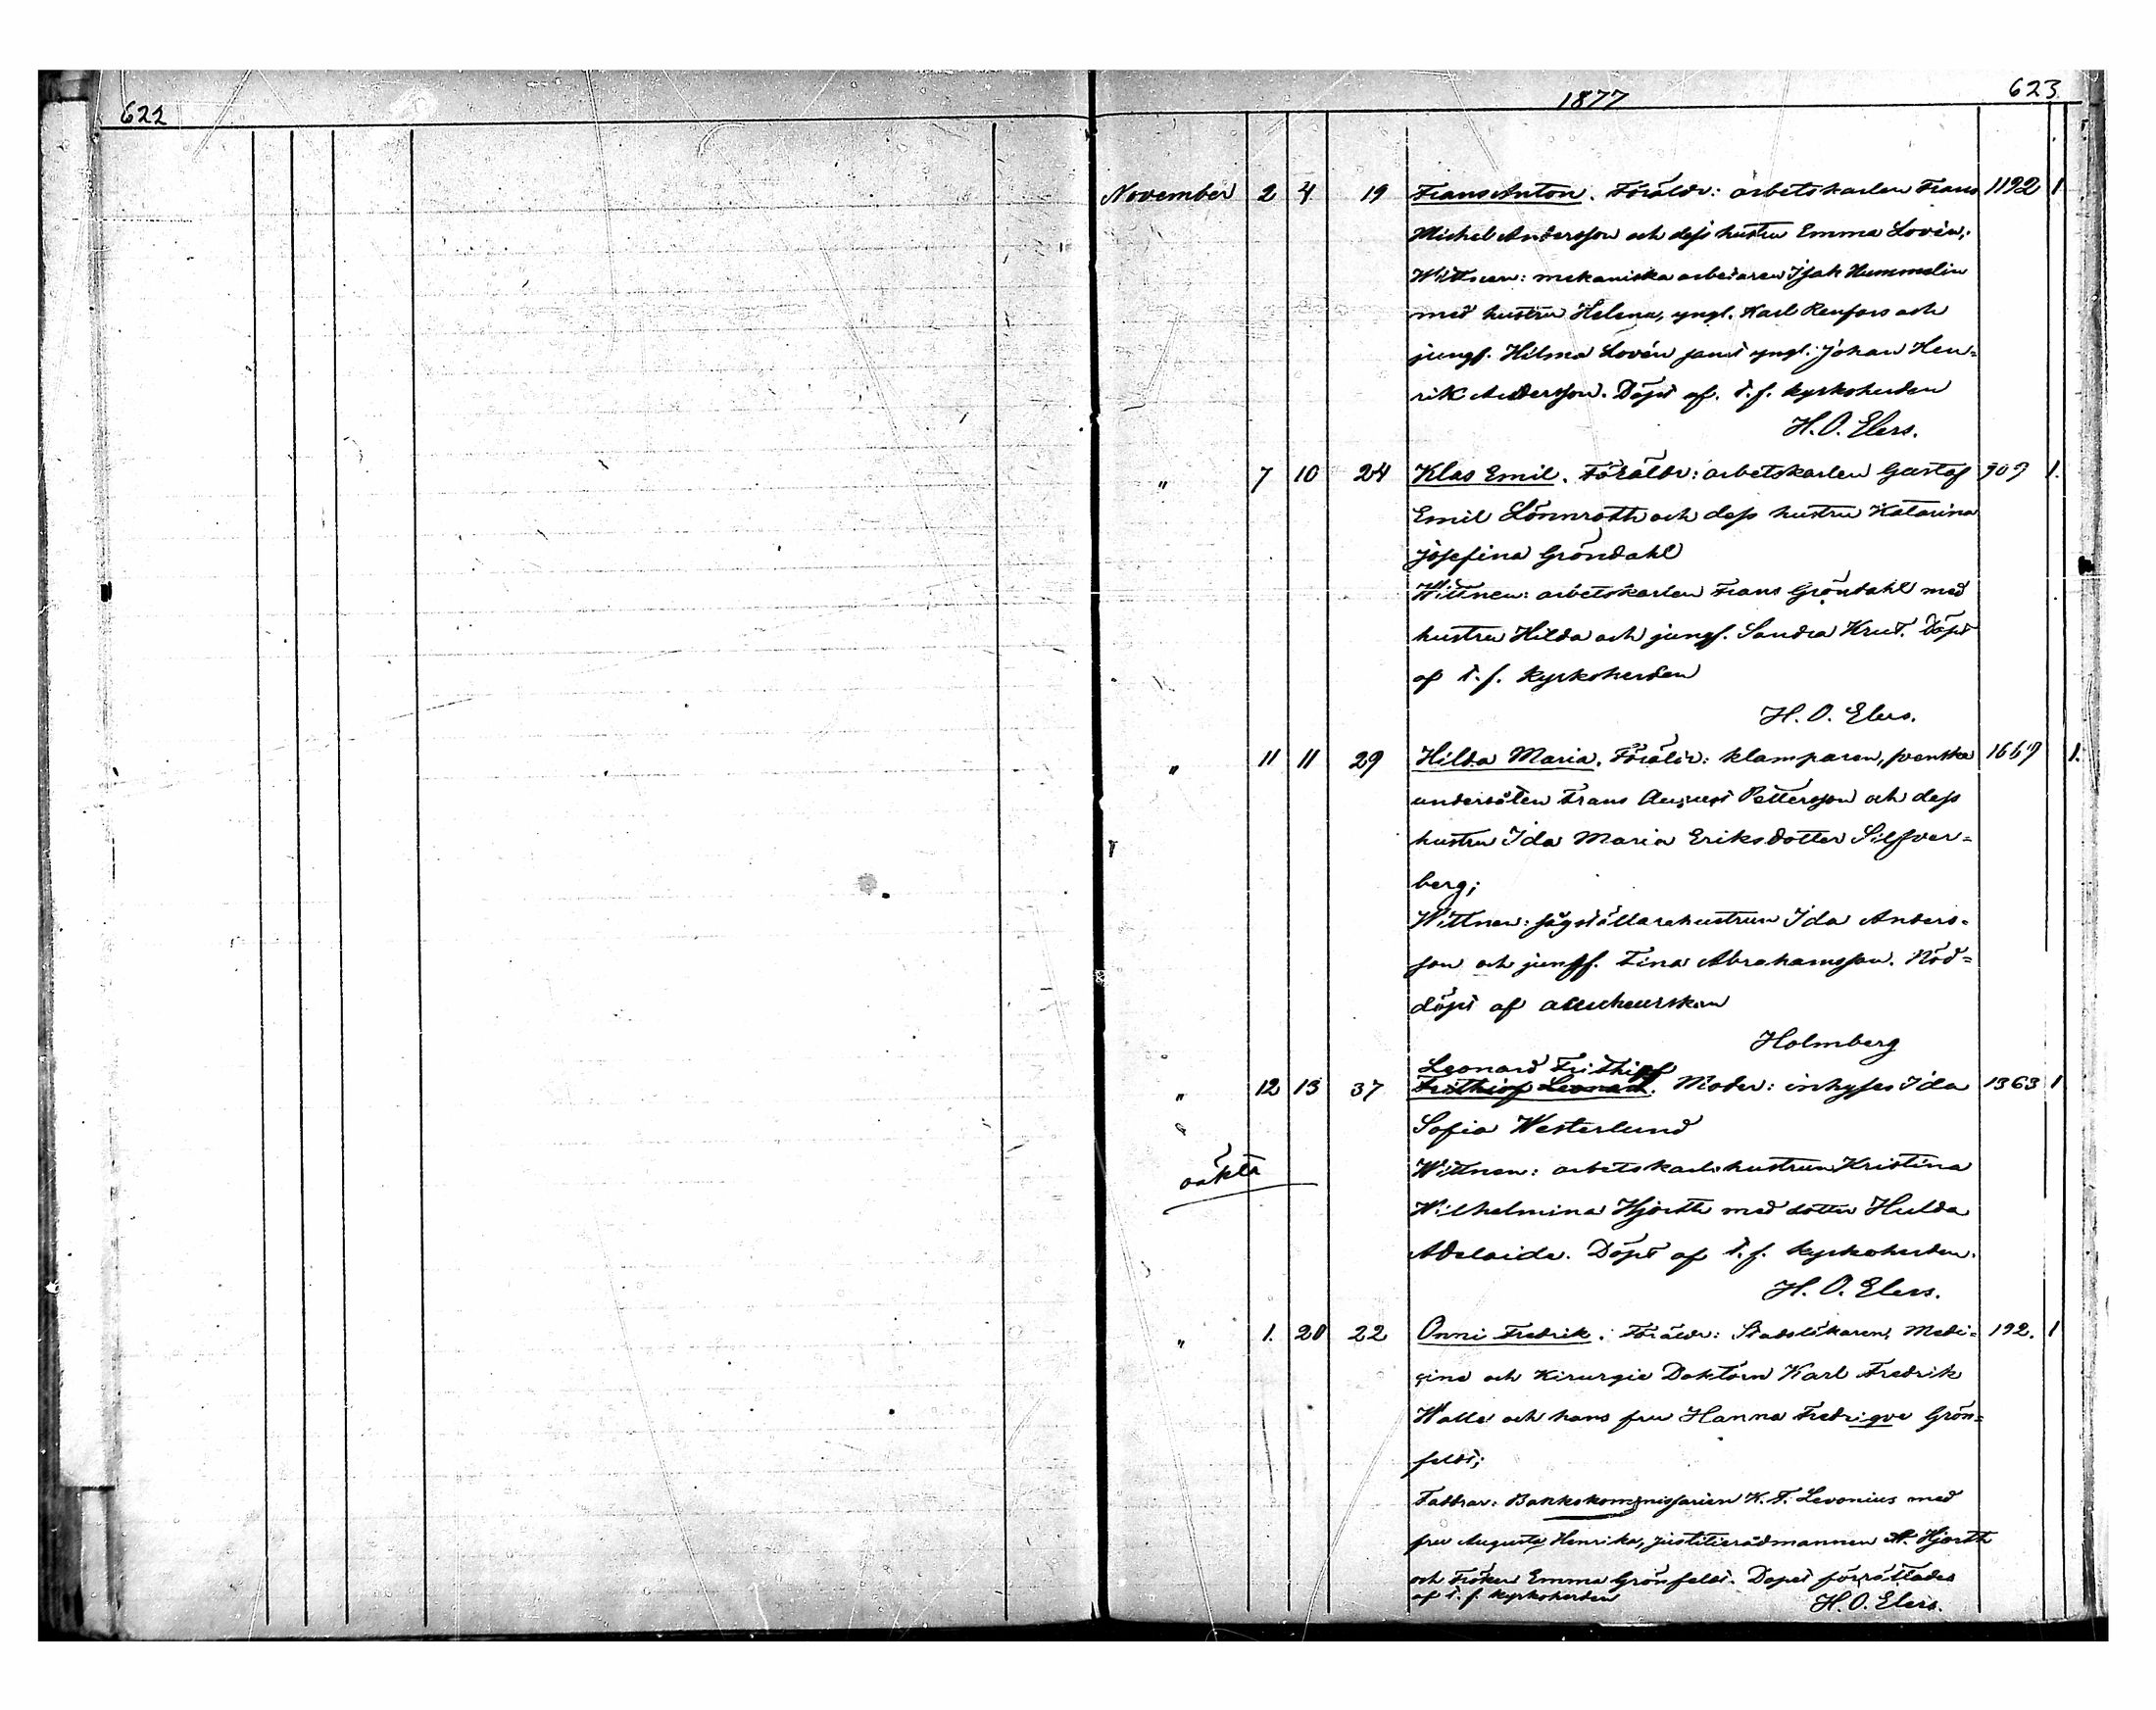 622
1877
623
November 2 4 19 Frans Anton. Föräldr: arbetskarlen Frans 1192 1
Michel Andersson och dess hustru Emma Lovén;
Wittnen: mekaniska arbetaren Isak Hummelin
med hustru Helena, yngl. Karl Renfors och
jungf. Hilma Lovén samt yngl. Johan Hen=
rik Andersson. Döpt af t. f. kyrkoherden
H. O. Elers.
" 7 10 24 Klas Emil. Föräldr: arbetskarlen Gustaf 909 1.
Emil Lönnroth och dess hustru Katarina
Josefina Gröndahl
Wittnen: arbetskarlen Frans Gröndahl med
hustru Hilda och jungf. Sandra Krut. Döpt
af t. f. kyrkoherden
H. O. Elers.
" 11 11 29 Hilda Maria. Föräldr: klamparen, svenska 1669 1.
undersåten Frans August Pettersson och dess
hustru Ida Maria Eriksdotter Silfver=
berg;
Wittnen: sågställarehustrun Ida Anders=
son och jungf. Fina Abrahamsson. Nöd=
döpt af accucheurskan
Holmberg
Leonard Frithiof
" 12 13 37 Frithiof Leonard. Moder: inhyses Ida 1363 1
Sofia Westerlund
oäkta Wittnen: arbetskarlshustrun Kristina
Wilhelmina Hjorth med dotter Hulda
Adelaide. Döpt af t. f. kyrkoherden.
H. O. Elers.
" 1. 20 22 Onni Fredrik. Föräldr: Stadsläkaren, Medi= 192. 1
cine och Kirurgie Doktorn Karl Fredrik
Walle och hans fru Hanna Fredrique Grön=
feldt;
Faddrar: Bankskommissarien K. F. Levonius med
fru Augusta Henrika, justitierådmannen A. Hjorth
och Fröken Emma Grönfeldt. Dopet förrättades
af t. f. kyrkoherden H. O. Elers.